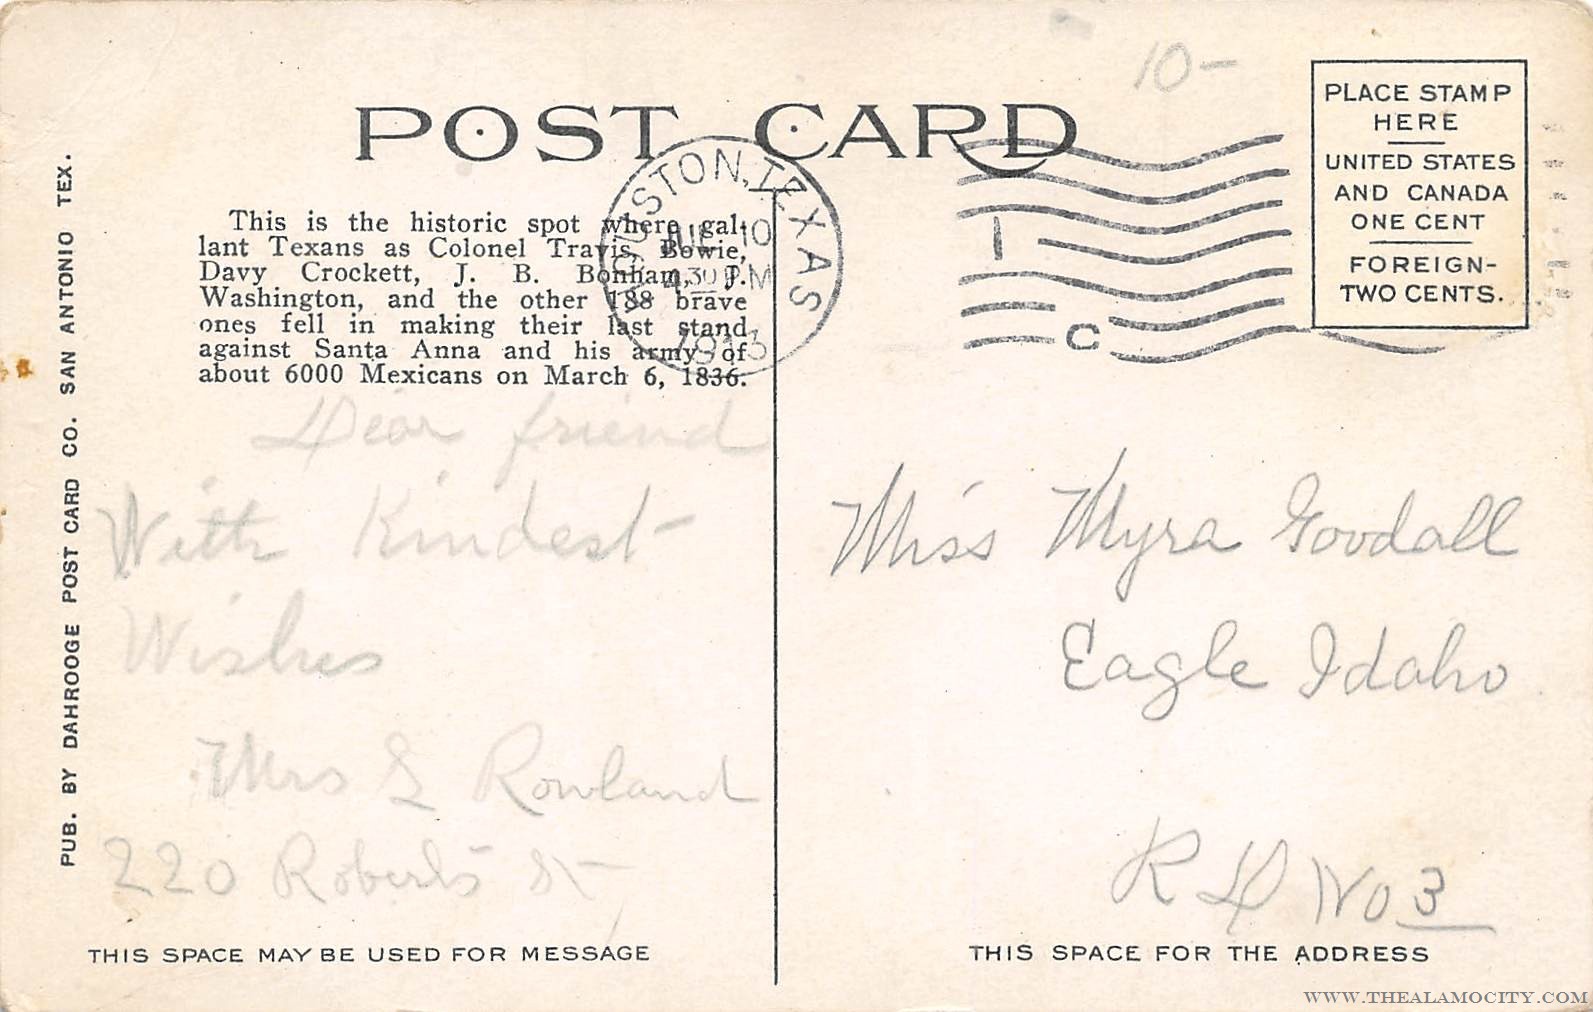 10-
POST CARD
PLACE STAMP
HERE
UNITED STATES
AND CANADA
ONE CENT
FOREIGN-
TWO CENTS.
HOUSTON, TEXAS
JUL 10
430 PM
1913
1
C
This is the historic spot where gal-
lant Texans as Colonel Travis, Bowie,
Davy Crockett, J. B. Bonham, J.
Washington, and the other 188 brave
ones fell in making their last stand
against Santa Anna and his army of
about 6000 Mexicans on March 6, 1836.
PUB. BY DAHROOGE POST CARD CO. SAN ANTONIO TEX.
Dear friend
With Kindest
Wishes
Mrs S Rowland
220 Roberts St
Miss Myra Goodall
Eagle Idaho
R D No 3
THIS SPACE MAY BE USED FOR MESSAGE
THIS SPACE FOR THE ADDRESS
WWW.THEALAMOCITY.COM